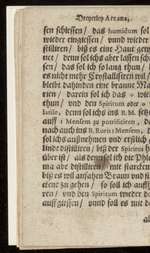 Dreyerley Arcana,
sen schiessen / das humidum sol
wieder eingiessen / vnnd wieder
stilliren / biß es eine Haut gew
nee / denn sol ichs aber lassen sch
sen / das sol ich so lang thun /
es nicht mehr Crystallisiren wil /
bleibt dahinden eine braune Ma
rien / darein sol ich das wie
thun / vnd den Spiritum oder
lanile, denn sol ichs ins B. M. seh
auff 1 Mensem zu putrificiren, d
nach auch ins B. Roris 1 Mensem,
sol ichs außnehmen vnd erstlich
linde distilliren / biß der Spiritus
über ist / als denn sol ich die Phl
ma abe distilliren / mit starckem
biß es wil anfahen Braun vnd
cteche zu gehen / so soll ich auff
ren / vnd den Spiritum wieder d
auff giessen / vnnd soll es mit de